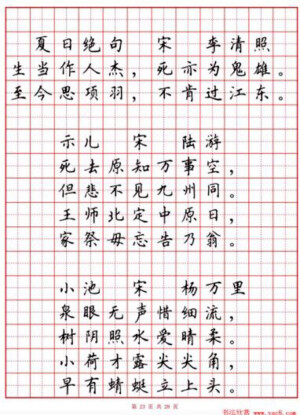 夏日绝句 宋 李清照
生当作人杰，死亦为鬼雄。
至今思项羽，不肯过江东。
示儿 宋 陆游
死去原知万事空，
但悲不见九州同。
王师北定中原日，
家祭毋忘告乃翁。
小池 宋 杨万里
泉眼无声惜细流，
树阴照水爱晴柔。
小荷才露尖尖角，
早有蜻蜓立上头。
第 23 页 共 28 页